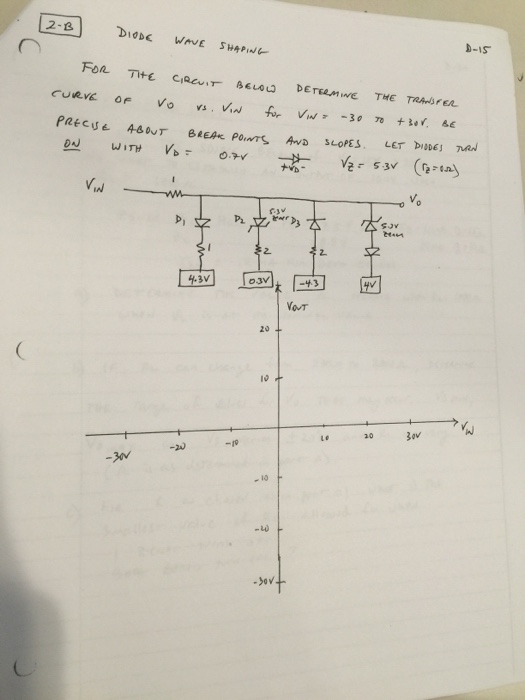 2-B
DIODE WAVE SHAPING
D-15
FOR THE CIRCUIT BELOW DETERMINE THE TRANSFER
CURVE OF VO vs. VIN for VIN = -30 TO +30V. BE
PRECISE ABOUT BREAK POINTS AND SLOPES. LET DIODES TURN
ON WITH VD = 0.7V +VD- VZ = 5.3V (rz=0Ω)
VIN 1 Vo
D1 D2 5.3V Zener D3 5.3V Zener
1 2 2
4.3V 0.3V -4.3 4V
VOUT
20
10
-30V -20 -10 10 20 30V VIN
-10
-20
-30V